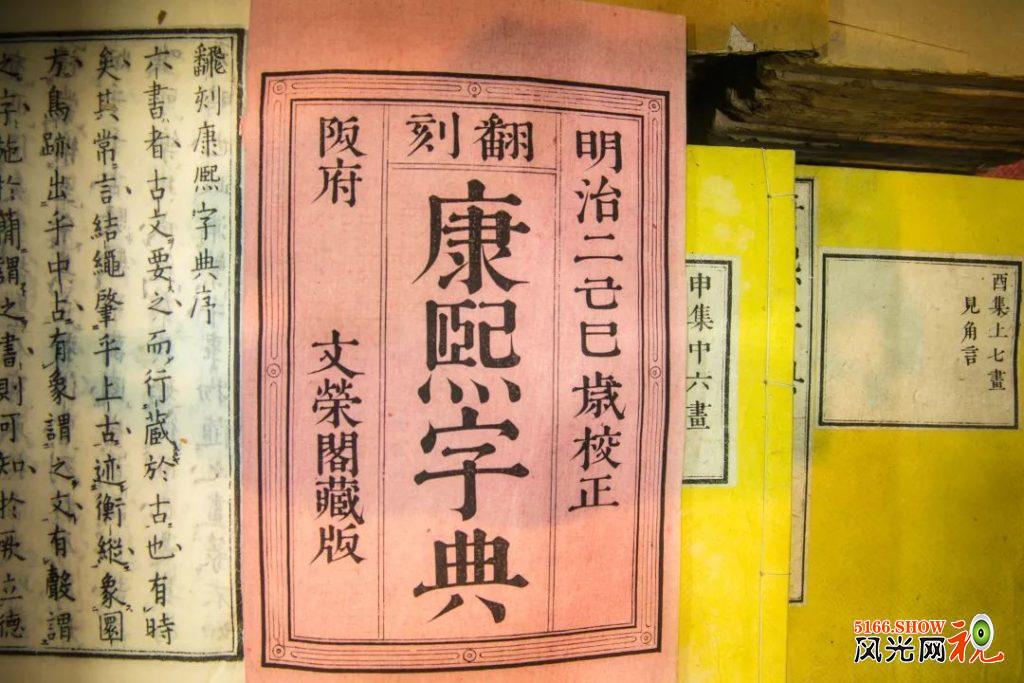 酉集上七畫
見角言
申集中六畫
明治二己巳歳校正
翻刻
康熙字典
阪府 文榮閣藏版
飜刻康熈字典序
夲書者古文要之而行藏於古也有時
矣其常言結繩肇乎上古迹衡縱象圜
方鳥跡出乎中占有象謂之文有聲謂
之字施於簡謂之書則可知於厥立德
5166.SHOW
风光网视